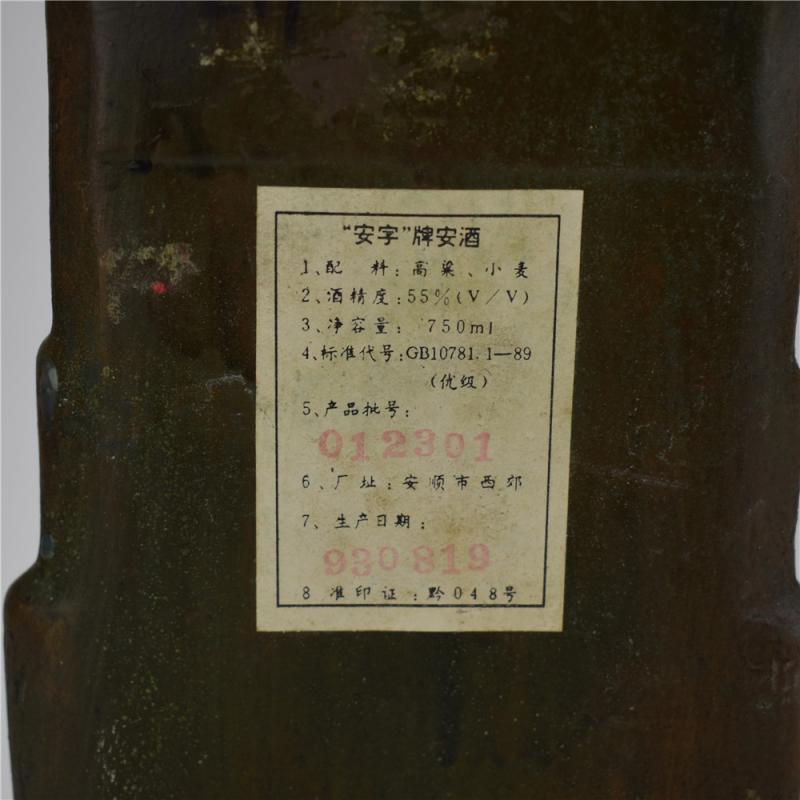 “安字”牌安酒
1、配 料：高粱、小麦
2、酒精度：55％（V／V）
3、净容量： 750ml
4、标准代号：GB10781.1—89
（优级）
5、产品批号：
012301
6、厂址：安顺市西郊
7、生产日期：
930819
8 准印证：黔048号